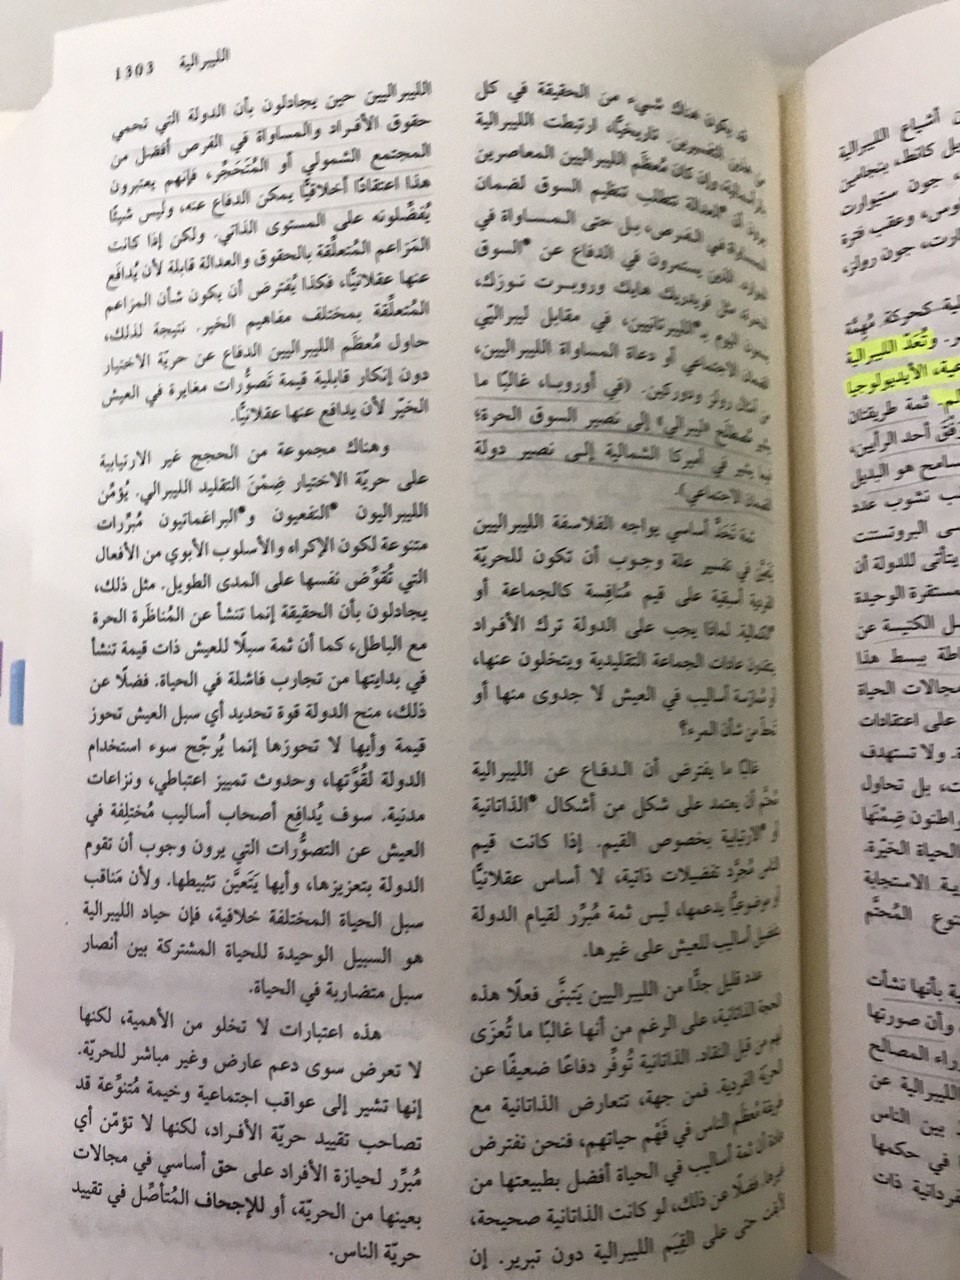 الليبرالية 1303
قد يكون هناك شيء من الحقيقة في كل
من هذين التفسيرين. تاريخيًّا، ارتبطت الليبرالية
وإن كان مُعظَم الليبراليين المعاصرين
يرون أن *العدالة تتطلب تنظيم السوق لضمان
المساواة في الفرص، بل حتى المساواة في
الذين يستمرون في الدفاع عن *السوق
الحرة، مثل فريدريك هايك وروبرت نوزك،
يسمون اليوم بـ*الليبرتانيين، في مقابل ليبراليّي
الضمان الاجتماعي أو دعاة المساواة الليبراليين،
من أمثال رولز ودوركين. (في أوروبا، غالبًا ما
يشير مُصطلَح «ليبرالي» إلى نصير السوق الحرة؛
فيما يشير في أميركا الشمالية إلى نصير دولة
الضمان الاجتماعي).
ثمة تَحَدٍّ أساسي يواجه الفلاسفة الليبراليين
في تفسير علة وجوب أن تكون للحريّة
الفردية أسبقية على قيم مُنافِسة كالجماعة أو
*الكمالية. لماذا يجب على الدولة ترك الأفراد
ينتقدون عادات الجماعة التقليدية ويتخلون عنها،
أو مُمارَسة أساليب في العيش لا جدوى منها أو
تحطّ من شأن المرء؟
غالبًا ما يفترض أن الدفاع عن الليبرالية
أن يعتمد على شكل من أشكال *الذاتانية
أو *الارتيابية بخصوص القيم. إذا كانت قيم
الناس مُجرَّد تفضيلات ذاتية، لا أساس عقلانيًّا
أو موضوعيًّا يدعمها، ليس ثمة مُبرِّر لقيام الدولة
بتفضيل أساليب للعيش على غيرها.
عدد قليل جدًّا من الليبراليين يَتبنَّى فعلًا هذه
الحجة الذاتانية، على الرغم من أنها غالبًا ما تُعزَى
لهم من قبل النقاد. الذاتانية تُوفِّر دفاعًا ضعيفًا عن
الحريّة الفردية. فمن جهة، تتعارض الذاتانية مع
طريقة مُعظَم الناس في فَهْم حياتهم، فنحن نفترض
عادة أن ثمة أساليب في الحياة أفضل بطبيعتها من
غيرها. فضلًا عن ذلك، لو كانت الذاتانية صحيحة،
لأتت حتى على القِيَم الليبرالية دون تبرير. إن
الليبراليين حين يجادلون بأن الدولة التي تحمي
حقوق الأفراد والمساواة في الفرص أفضل من
المجتمع الشمولي أو المُتَحَجِّر، فإنهم يعتبرون
هذا اعتقادًا أخلاقيًّا يمكن الدفاع عنه، وليس شيئًا
يُفَضِّلونه على المستوى الذاتي. ولكن إذا كانت
المَزاعم المُتعلِّقة بالحقوق والعدالة قابلة لأن يُدافَع
عنها عقلانيًّا، فكذا يُفترَض أن يكون شأن المزاعم
المُتعلِّقة بمختلف مفاهيم الخير. نتيجة لذلك،
حاول مُعظَم الليبراليين الدفاع عن حريّة الاختيار
دون إنكار قابلية قيمة تَصوُّرات مغايرة في العيش
الخيّر لأن يدافع عنها عقلانيًّا.
وهناك مجموعة من الحجج غير الارتيابية
على حريّة الاختيار ضِمْنَ التقليد الليبرالي. يُؤمْن
الليبراليون *النفعيون و*البراغماتيون مُبرِّرات
متنوعة لكون الإكراه والأسلوب الأبوي من الأفعال
التي تُقوِّض نفسها على المدى الطويل. مثل ذلك،
يجادلون بأن الحقيقة إنما تنشأ عن المُناظَرة الحرة
مع الباطل، كما أن ثمة سبلًا للعيش ذات قيمة تنشأ
في بدايتها من تجارب فاشلة في الحياة. فضلًا عن
ذلك، منح الدولة قوة تحديد أي سبل العيش تحوز
قيمة وأيها لا تحوزها إنما يُرجّح سوء استخدام
الدولة لقُوَّتها، وحدوث تمييز اعتباطي، ونزاعات
مدنية. سوف يُدافِع أصحاب أساليب مُختلِفة في
العيش عن التصوُّرات التي يرون وجوب أن تقوم
الدولة بتعزيزها، وأيها يَتَعيَّن تثبيطها. ولأن مَناقب
سبل الحياة المختلفة خلافية، فإن حياد الليبرالية
هو السبيل الوحيدة للحياة المشتركة بين أنصار
سبل متضاربة في الحياة.
هذه اعتبارات لا تخلو من الأهمية، لكنها
لا تعرض سوى دعم عارض وغير مباشر للحريّة.
إنها تشير إلى عواقب اجتماعية وخيمة مُتنوِّعة قد
تصاحب تقييد حريّة الأفراد، لكنها لا تؤمّن أي
مُبرِّر لحيازة الأفراد على حق أساسي في مجالات
بعينها من الحريّة، أو للإجحاف المُتأصِّل في تقييد
حريّة الناس.
أشياع الليبرالية
كانط، بنجامين
جون ستيوارت
وعقب فترة
جون رولز،
كحركة مُهِمَّة
وتُعَدّ الليبرالية
الأيديولوجيا
ثمة طريقتان
أحد الرأيين،
هو البديل
نشوب عدد
البروتستنت
يتأتى للدولة أن
المستقرة الوحيدة
الكنيسة عن
يبسط هذا
مجالات الحياة
على اعتقادات
ولا تستهدف
بل تحاول
ضِمْنَها
الحياة الخيّرة.
الاستجابة
المُحتَّم
بأنها نشأت
وأن صورتها
وراء المصالح
الليبرالية عن
بين الناس
في حكمها
ذات